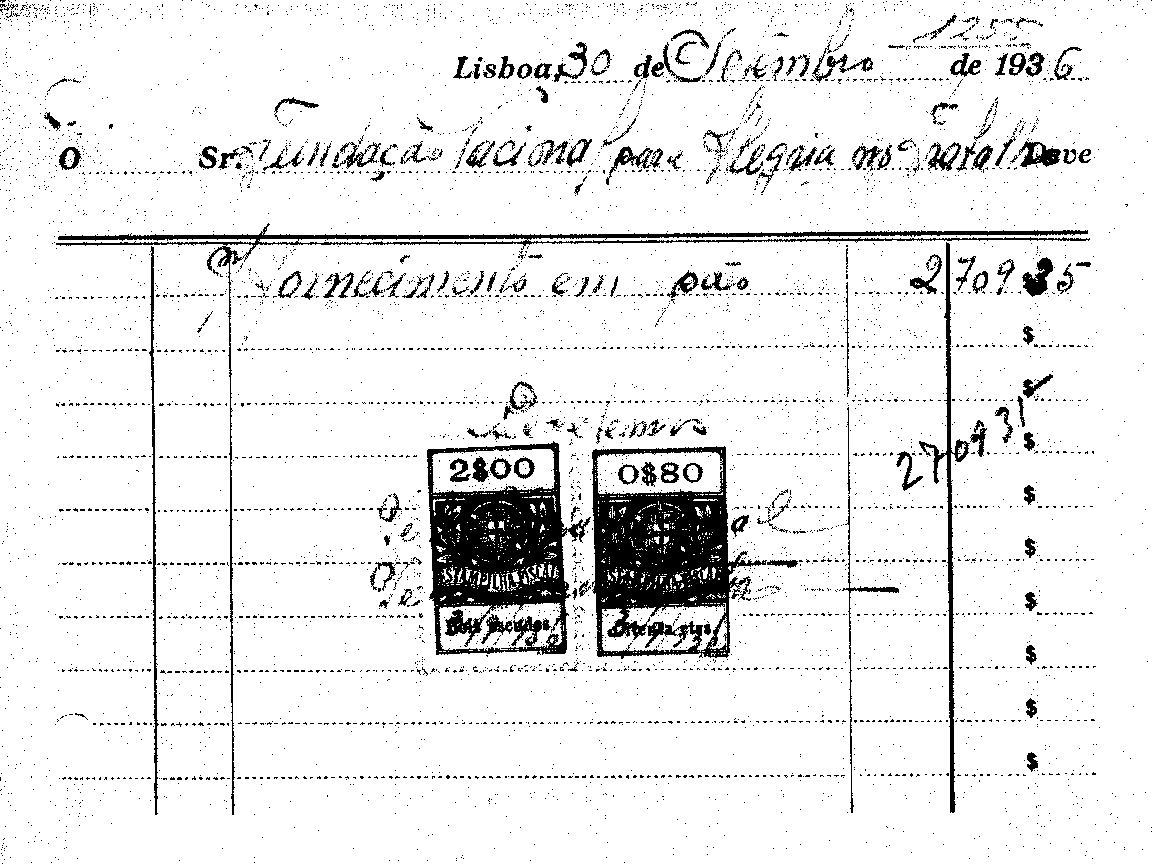 1255
Lisboa, 30 de Setembro de 1936
O Sr. Fundação Nacional para Alegria no Trabalho Deve
Fornecimento em pão 2 709 $ 35
$
$
Recebemos
$
2$00 0$80
$
$
ESTAMPILHA FISCAL ESTAMPILHA FISCAL
$
Dois escudos Oitenta ctvs.
$
$
$